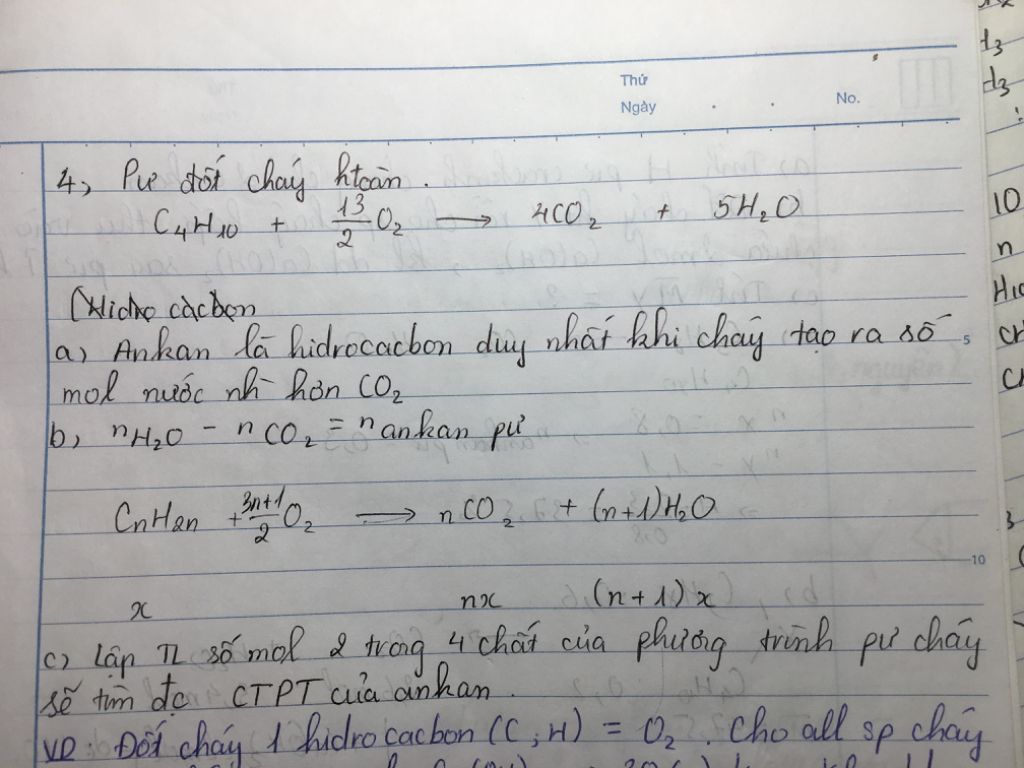 Thứ
Ngày . . No.
4, Pư đốt cháy htoàn.
C₄H₁₀ + 13/2 O₂ → 4CO₂ + 5H₂O
(Hidro cacbon
a, Ankan là hidrocacbon duy nhất khi cháy tạo ra số 5
mol nước nh hơn CO₂
b, nH₂O - nCO₂ = n ankan pư
CnH2n + 3n+1/2 O₂ → nCO₂ + (n+1)H₂O
10
x nx (n+1)x
c, Lập TL số mol 2 trong 4 chất của phương trình pư cháy
sẽ tìm đc CTPT của ankan.
VD: Đốt cháy 1 hidrocacbon (C, H) = O₂. Cho all sp cháy
t3
d3
10
n
3